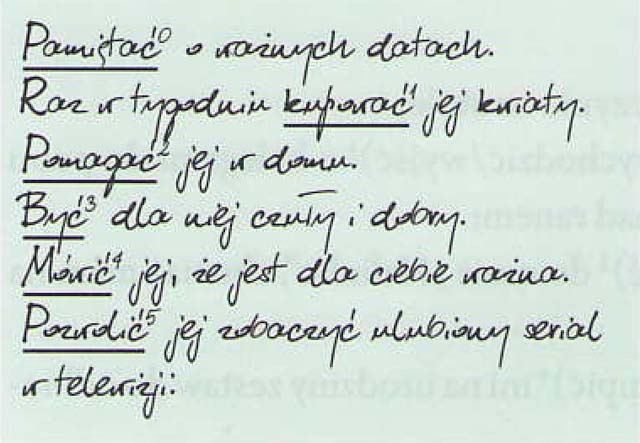 Pamiętać⁰ o ważnych datach.
Raz w tygodniu kupować¹ jej kwiaty.
Pomagać² jej w domu.
Być³ dla niej czuły i dobry.
Mówić⁴ jej, że jest dla ciebie ważna.
Pozwolić⁵ jej zobaczyć ulubiony serial
w telewizji.